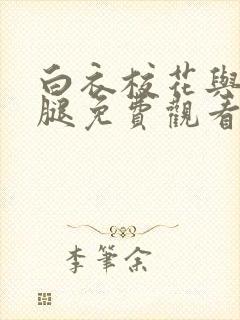 白衣校花與
腿免費觀看
李筆余